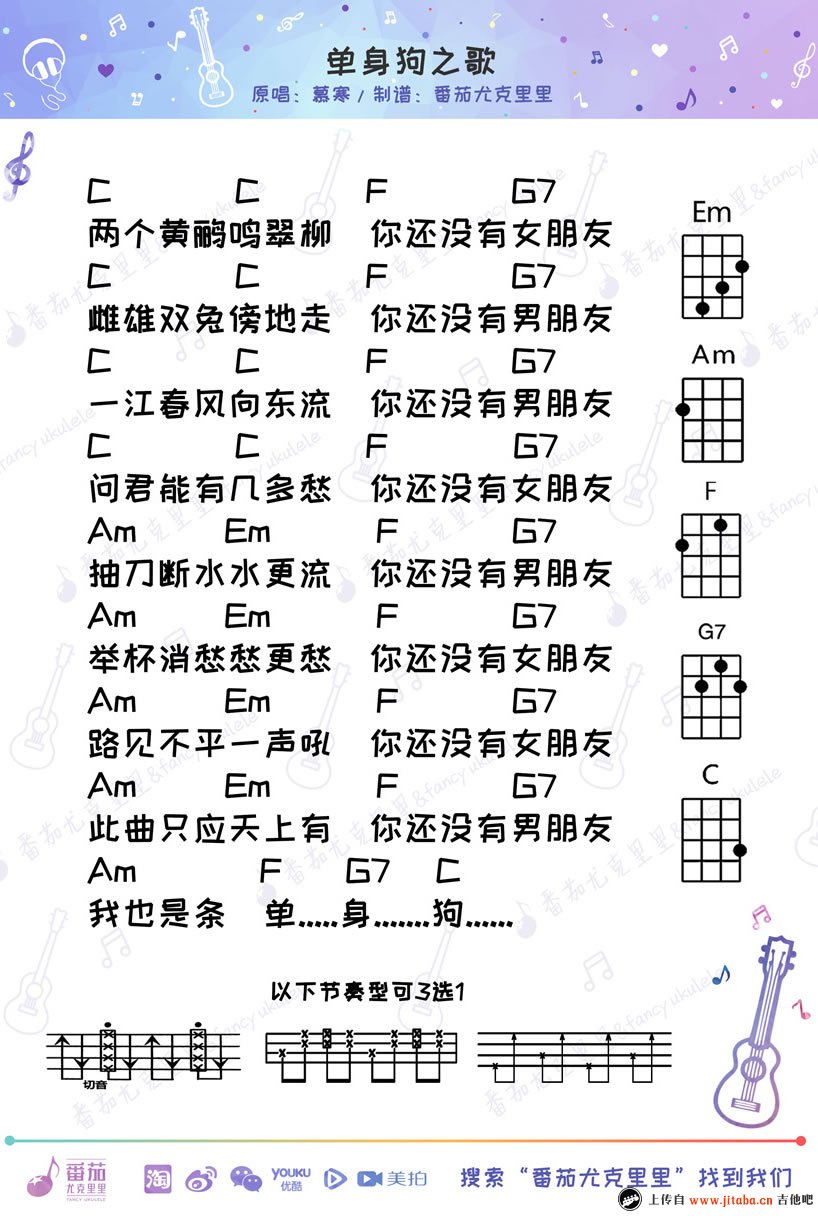 单身狗之歌
原唱：慕寒 / 制谱：番茄尤克里里
C C F G7
两个黄鹂鸣翠柳 你还没有女朋友
C C F G7
雌雄双兔傍地走 你还没有男朋友
C C F G7
一江春风向东流 你还没有男朋友
C C F G7
问君能有几多愁 你还没有女朋友
Am Em F G7
抽刀断水水更流 你还没有男朋友
Am Em F G7
举杯消愁愁更愁 你还没有女朋友
Am Em F G7
路见不平一声吼 你还没有女朋友
Am Em F G7
此曲只应天上有 你还没有男朋友
Am F G7 C
我也是条 单.....身.......狗......
Em
Am
F
G7
C
以下节奏型可3选1
切音
番茄
尤克里里
TOMATO UKULELE
淘
YOUKU
优酷
美拍
搜索“番茄尤克里里”找到我们
上传自 www.jitaba.cn 吉他吧
番茄尤克里里&fancy ukulele